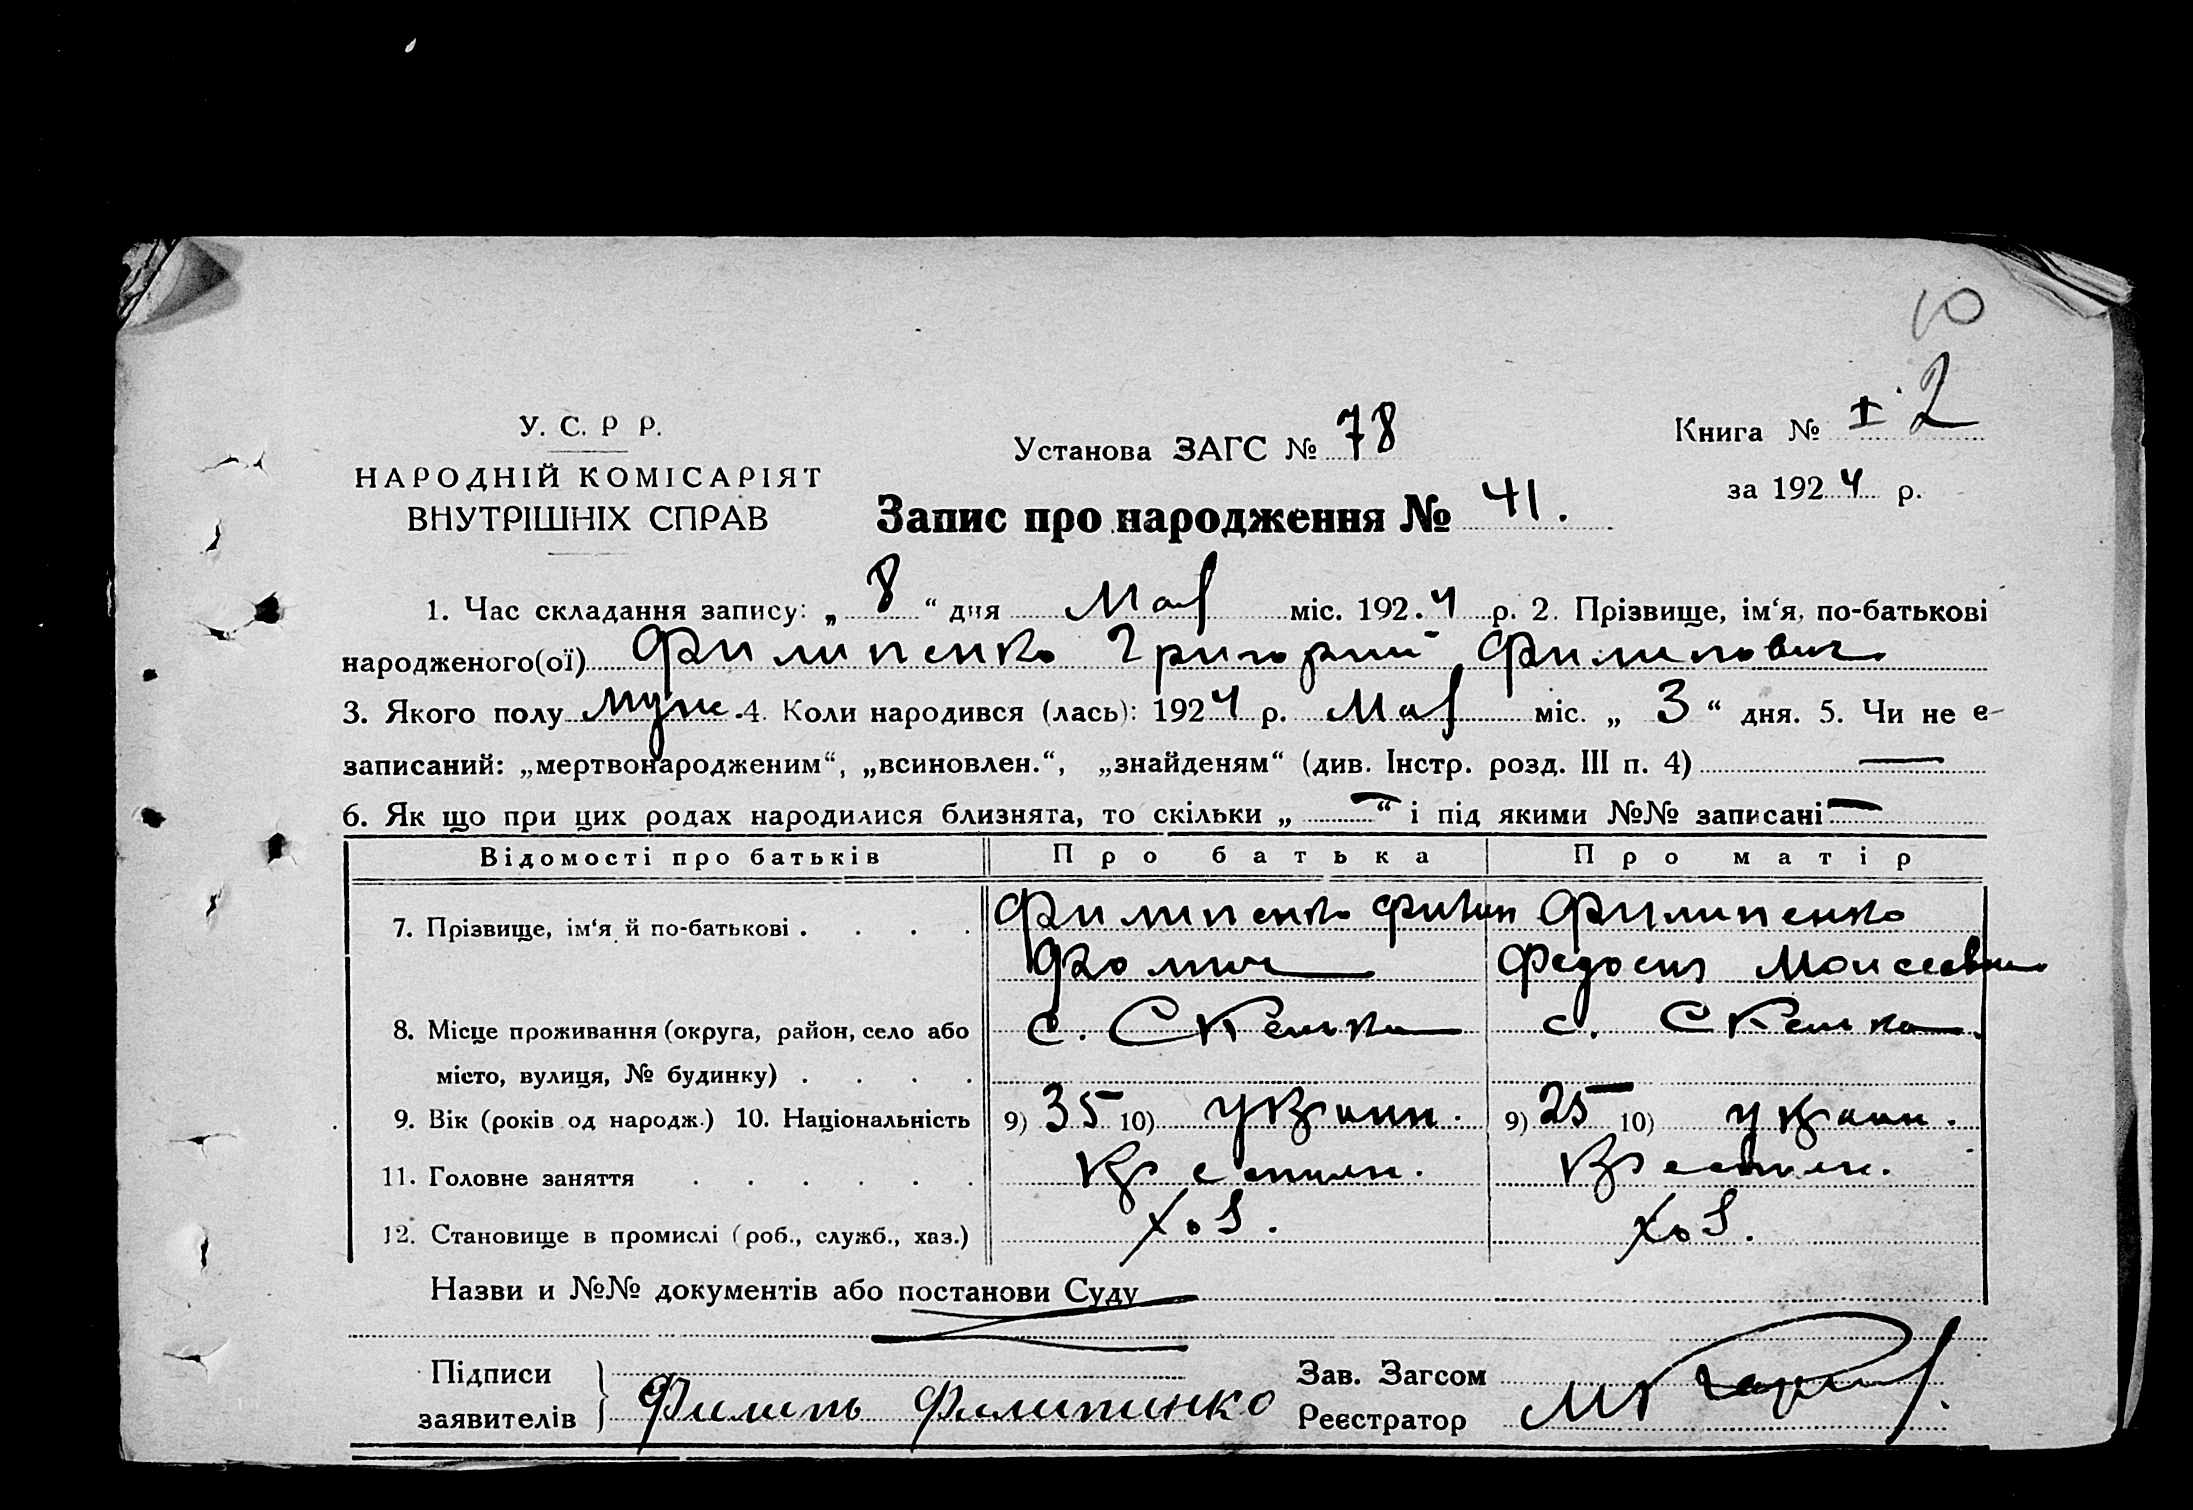 10
У. С. Р Р.
НАРОДНІЙ КОМІСАРІЯТ
ВНУТРІШНІХ СПРАВ
Установа ЗАГС № 78
Книга № I 2
за 1924 р.
Запис про народження № 41.
1. Час складання запису: „ 8 “ дня Мая міс. 1924 р. 2. Прізвище, ім‘я, по-батькові
народженого(ої) Филипенко Григорий Филипович
3. Якого полу муж. 4. Коли народився (лась): 1924 р. Мая міс. „ 3 “ дня. 5. Чи не є
записаний: „мертвонародженим“, „всиновлен.“, „знайденям“ (див. Інстр. розд. III п. 4) —
6. Як що при цих родах народилися близнята, то скільки „ — “ і під якими №№ записані —
Відомості про батьків Про батька Про матір
7. Прізвище, ім‘я й по-батькові . . . . Филипенко Филип Филипенко
Фомич Федосия Моисеевна
8. Місце проживання (округа, район, село або с. Скельки с. Скелька
місто, вулиця, № будинку) . . . .
9. Вік (років од народж.) 10. Національність 9) 35 10) украин. 9) 25 10) украин.
11. Головне заняття . . . . . . Крестьян. Крестьян.
12. Становище в промислі (роб., служб., хаз.) Хоз. Хоз.
Назви и №№ документів або постанови Суду
Підписи
заявителів Филипь Филипинко
Зав. Загсом
Реєстратор